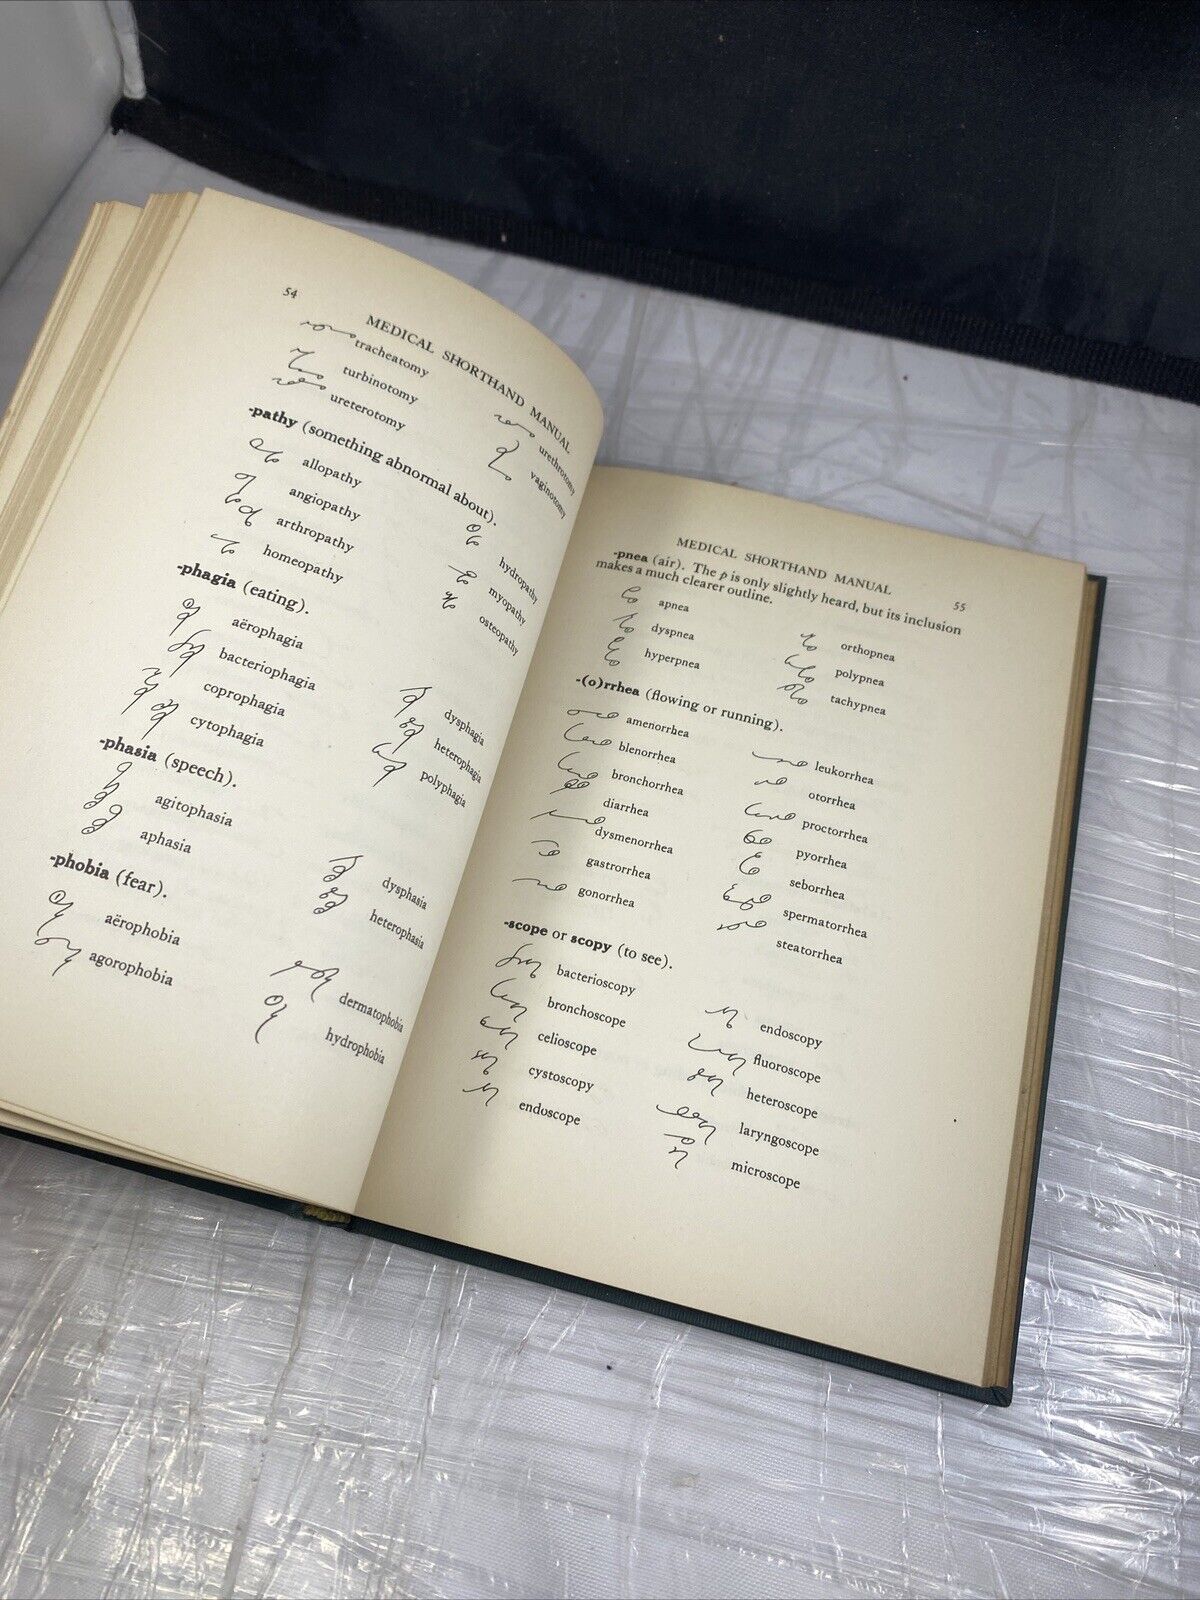 54
MEDICAL SHORTHAND MANUAL
tracheatomy
turbinotomy
ureterotomy
urethrotomy
vaginotomy
-pathy (something abnormal about).
allopathy
angiopathy
arthropathy
homeopathy
hydropathy
myopathy
osteopathy
-phagia (eating).
aërophagia
bacteriophagia
coprophagia
cytophagia
dysphagia
heterophagia
polyphagia
-phasia (speech).
agitophasia
aphasia
dysphasia
heterophasia
-phobia (fear).
aërophobia
agorophobia
dermatophobia
hydrophobia
MEDICAL SHORTHAND MANUAL
55
-pnea (air). The p is only slightly heard, but its inclusion
makes a much clearer outline.
apnea
dyspnea
hyperpnea
orthopnea
polypnea
tachypnea
-(o)rrhea (flowing or running).
amenorrhea
blenorrhea
bronchorrhea
diarrhea
dysmenorrhea
gastrorrhea
gonorrhea
leukorrhea
otorrhea
proctorrhea
pyorrhea
seborrhea
spermatorrhea
steatorrhea
-scope or scopy (to see).
bacterioscopy
bronchoscope
celioscope
cystoscopy
endoscope
endoscopy
fluoroscope
heteroscope
laryngoscope
microscope